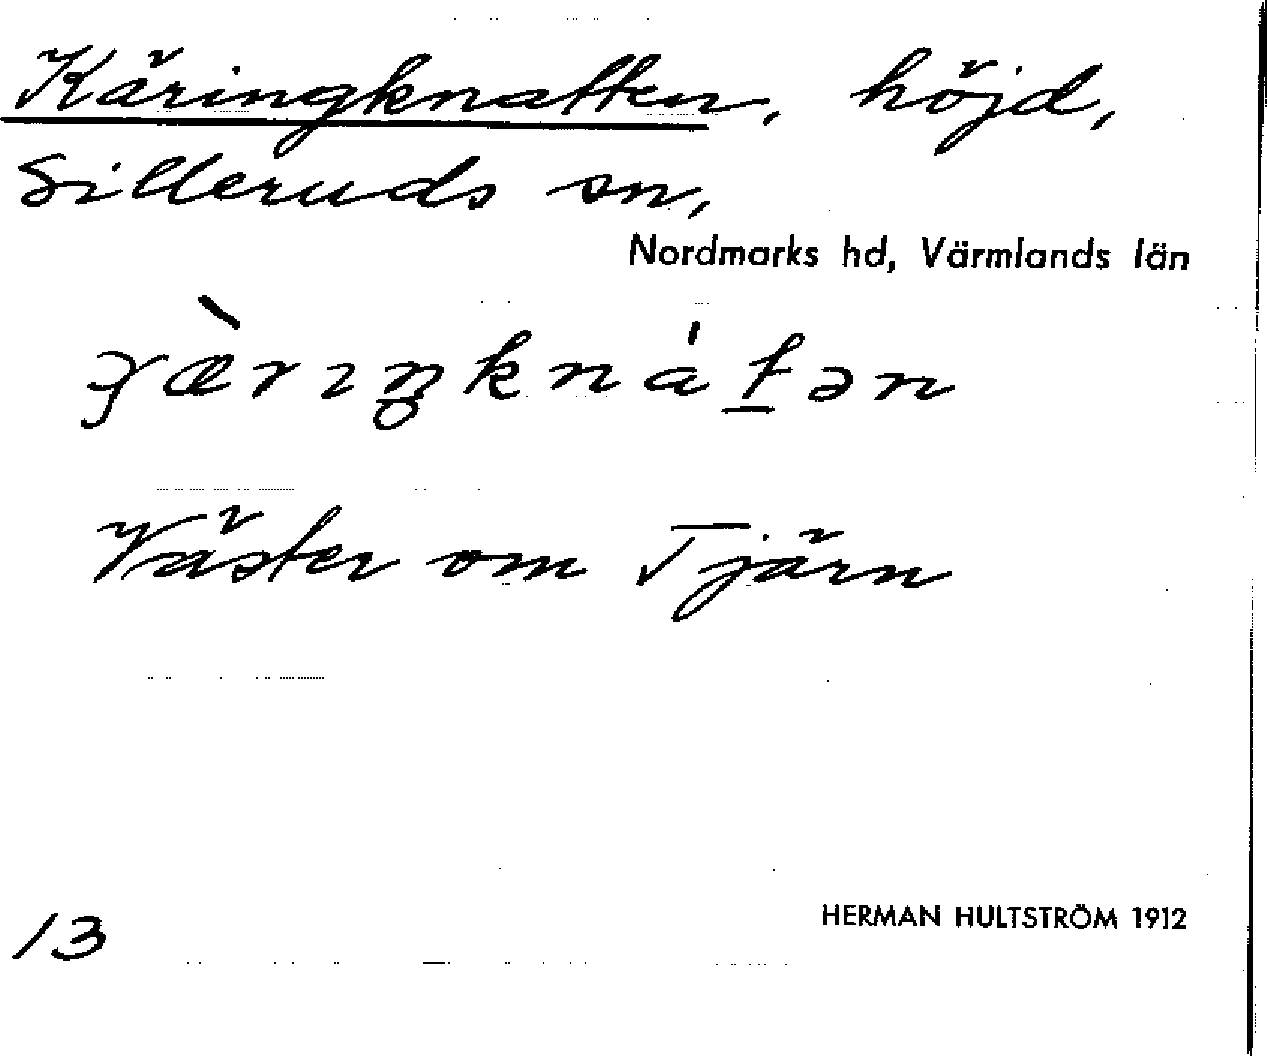 Käringknatten, höjd,
Silleruds sn,
Nordmarks hd, Värmlands län
Väster om Tjärn
13
HERMAN HULTSTRÖM 1912